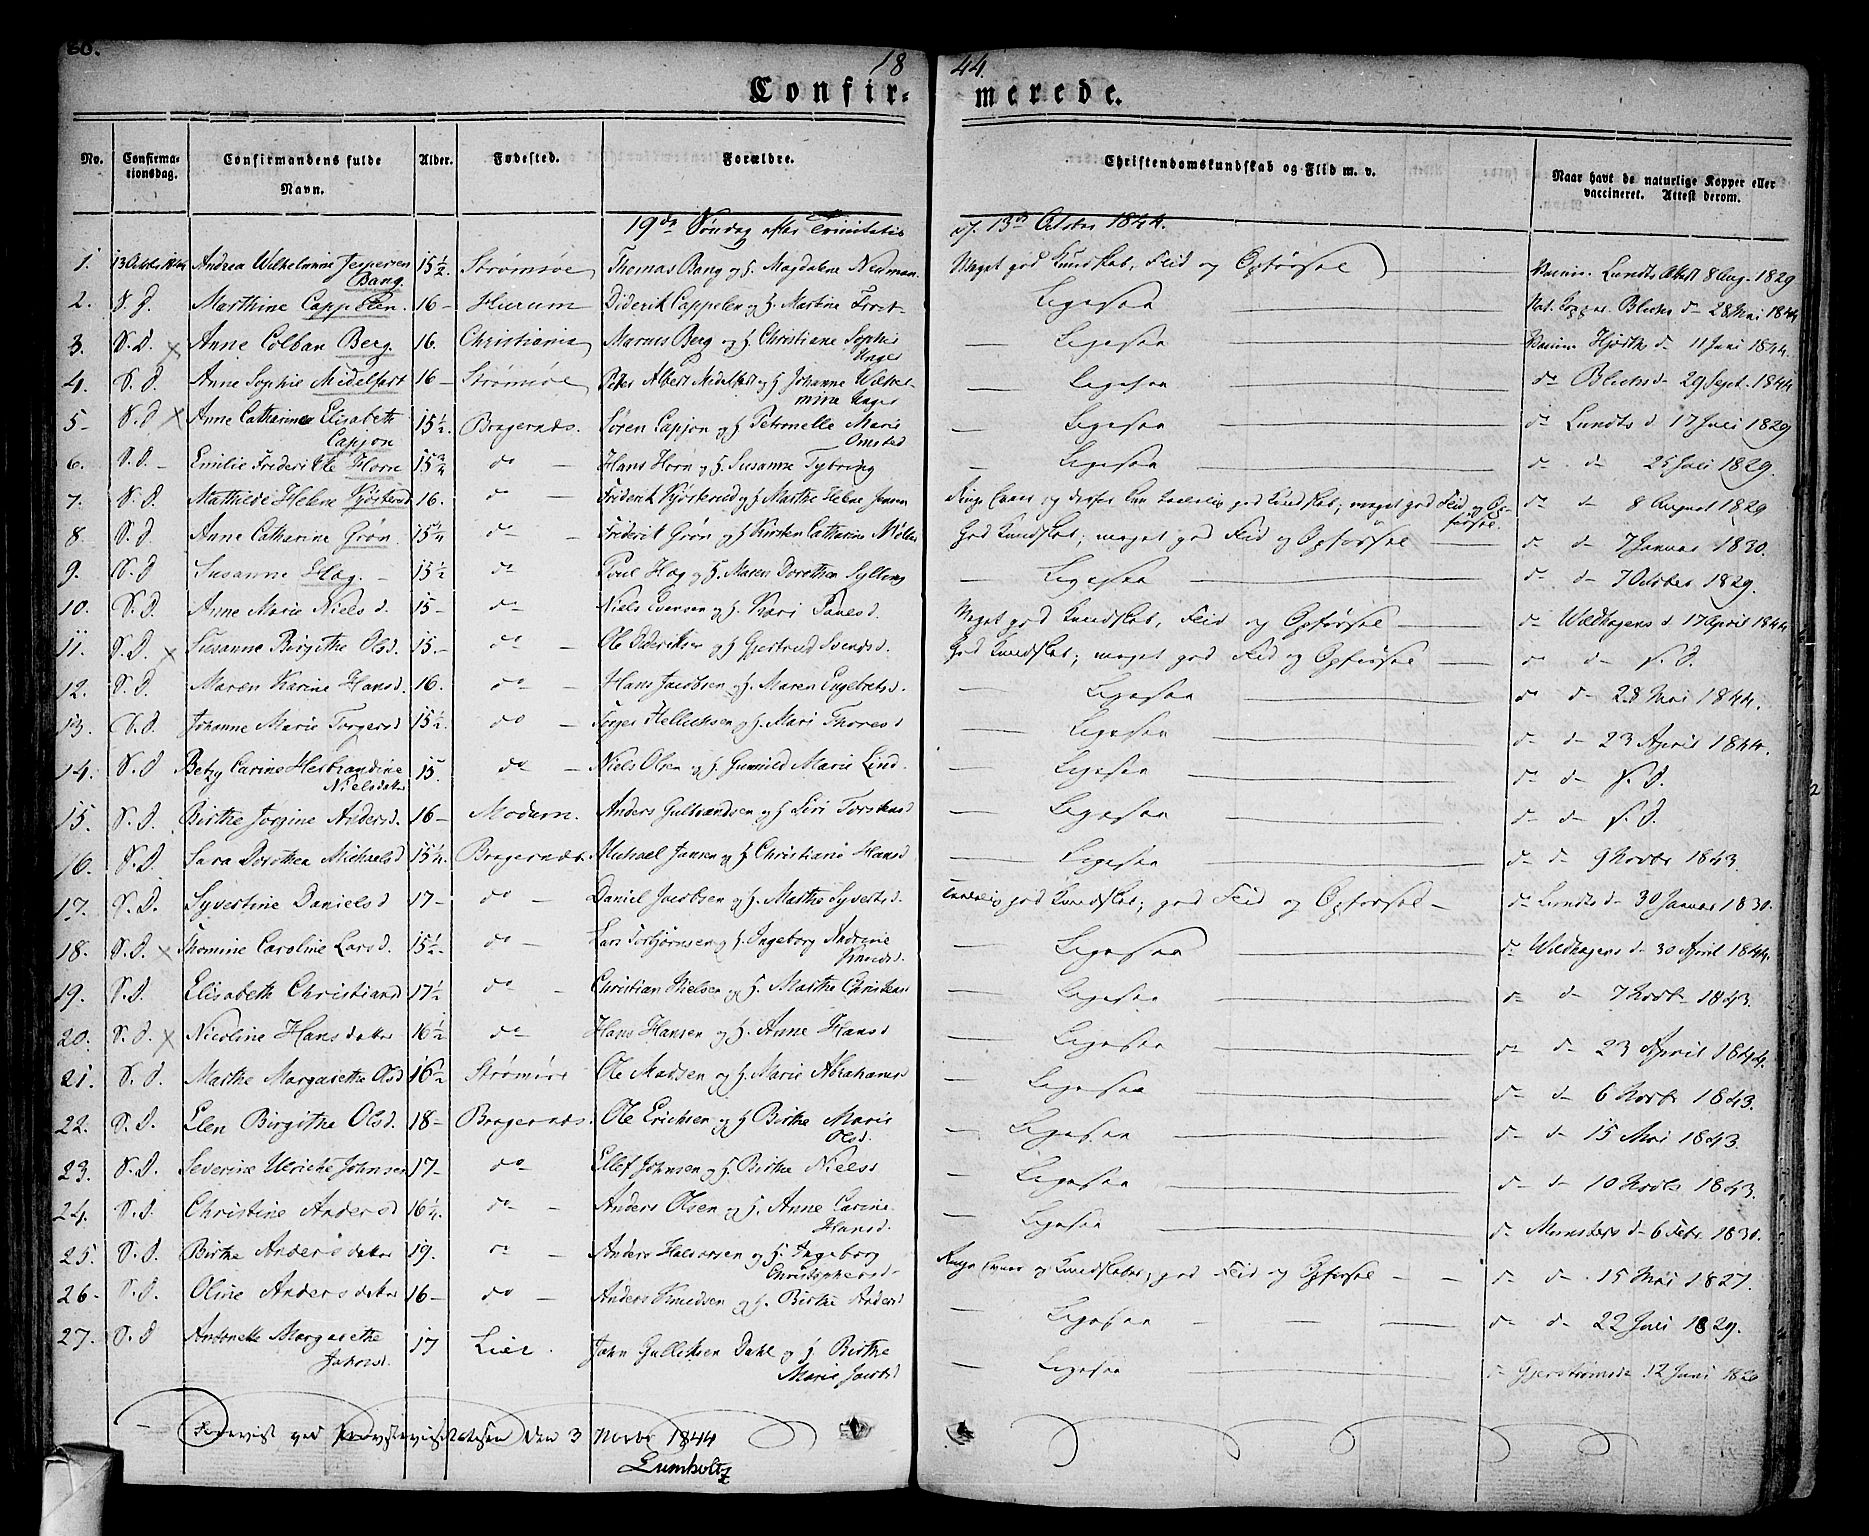 18 44.
Confir- merede.
No. Confirmationsdag. Confirmandens fulde Navn. Alder. Fødested. Forældre. Christendomskundskab og Flid m. v. Naar havt de naturlige Kopper eller vaccineret. Attest derom.
19de Søndag efter Trinitatis d. 13de October 1844.
1. 13 October 1844 Andrea Wilhelmine Jespersen Bang. 15½. Strømsøe Thomas Bang og H. Magdalene Neuman Meget god Kundskab, Flid og Opførsel Vaccin. Lundts Attest 8 Aug. 1829
2. S. D. Marthine Cappelen. 16 – Hurum Diderik Cappelen og H. Martine Ligesaa Nat. Kopper Blichs d– 28 Mai 1844
3. S. D. x Anne Colban Berg. 16. Christiania Marus Berg og H. Christiane Sophie Unger – Ligesaa Vaccin. Hjorths d– 11 Juni 1844.
4. S. D. Anne Sophie Midelfart 16 – Strømsøe Peter Albert Midelfart og H. Johanne Wilhelmine Unger – Ligesaa d– Blichs d– 29 Sept. 1844
5 – S. D x Anne Catharine Elisabeth Capjon 15½. Bragernæs. Søren Capjon og H. Petronelle Marie Omsted – Ligesaa d– Lundts d 17 Juli 1829
6. S. D. – Emilie Frederikke Horn 15¾ do – Hans Horn og H. Susanne Tybring – Ligesaa d– d– 25 Juli 1829.
7. S. D. Mathilde Helene Kjøsterud 16. do – Friderik Kjøsterud og H. Marthe Helene Jensen Ringe Evner og derfor kun taalelig god Kundskab; meget god Flid og Opførsel. d– d– 8 August 1829
8. S. D. Anne Catharine Grøn. 15¼ do – Friderik Grøn og H. Kirsten Catharine Møller God Kundskab; meget god Flid og Opførsel d– d– 7 Januar 1830.
9. S. D Susanne Høg. – 15½ do Poul Høg og H. Maren Dorothea Sylling – Ligesaa d– d– 7 October 1829.
10. S. D. Anne Marie Niels d. 15 – do Niels Evensen og H. Kari Paulsd. Meget god Kundskab, Flid og Opførsel d– Waldhagens d. 17 April 1844
11. S. D. x Susanne Birgithe Olsd. 15. – do – Ole Dideriksen og H. Gjertrud Svendsd. God Kundskab; meget god Flid og Opførsel d– d– S. D.
12. S. D. Maren Karine Hansd. 16. do – Hans Jacobsen og H. Maren Engebretsd. – Ligesaa d– d– 28 Mai 1844.
13. S. D. Johanne Marie Torgersd 15½. do – Torger Hellichsen og H. Mari Thoresd – Ligesaa d– d– 23 April 1844.
14. S. D Betzy Carine Herbrandine Nielsdatter 15. do – Niels Olsen og H. Gunnild Marie Lind. – Ligesaa d– d– S. D.
15. S. D. Birthe Jorgine Andersd. 16 – Modum. Anders Gulbrandsen og H. Siri Torstensd – Ligesaa d– d– S. D.
16. S. D. Sara Dorothea Michaelsd 15¼. Bragernæs. Michael Jansen og H. Christiane Hansd – Ligesaa d– d– 9 Novbr 1843.
17. S. D. Syvertine Daniels d 17 – do – Daniel Jacobsen og H. Marthe Syvertsd. Taalelig god Kundskab; god Flid og Opførsel – d– Lundts d– 30 Januar 1830.
18. S. D. x Thomine Caroline Larsd. 15½. do – Lars Torbjørnsen og H. Ingeborg Andrine Knudsd. – Ligesaa d– Waldhagens d– 30 April 1844.
19. S. D. Elisabeth Christiansd 17½ do – Christian Nielsen og H. Marthe Christensd – Ligesaa d– d– 7 Novb– 1843.
20. S. D. x Nicoline Hans datter 16½ do – Hans Hansen og H. Anne Hansd – Ligesaa d– d– 23 April 1844.
21. S. D. Marthe Margarethe Olsd 16½ Strømsøe Ole Madsen og H. Marie Abrahamsd – Ligesaa d– d– 6 Novbr 1843.
22. S. D. Elen Birgithe Olsd. 18 – Bragernæs. Ole Erichsen og H. Birthe Marie Olsd. – Ligesaa d– d– 15 Mai 1843.
23. S. D. Severine Ulriche Johnsen 17 – do Ellef Johnsen og H. Birthe Nielsd – Ligesaa d– d– 10 Novbr 1843.
24. S. D. Christine Anders d 16¼. do – Anders Olsen og H. Anne Carine Hansd. – Ligesaa d– Munsters d– 6 Febr. 1830.
25. S. D. Birthe Anders datter 19. do – Anders Halvorsen og H. Ingeborg Christophersd – Ringe Evner og Kundskaber; god Flid og Opførsel – – d– d– 15 Mai 1827.
26. S. D. Oline Anders datter 16 – do – Anders Knudsen og H. Birthe Andersd – Ligesaa d– d– 22 Juli 1829.
27. S. D Antonette Margarethe Johnsd. 17 Lier. John Gulliksen Dahl og H. Birthe Marie Jacobsd – Ligesaa d– Gjerstrømsd– 12 Juni 1820
– Foreviist ved Provstevisitatsen den 3 Novbr 1844
Lumholtz